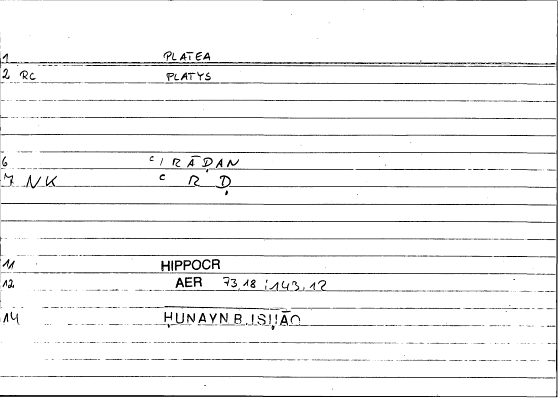 1 PLATEA
2 RC PLATYS
6 ᶜIRĀḌAN
7 NK ᶜ R Ḍ
11 HIPPOCR
12 AER 73,18 ; 143,12
14 ḤUNAYN B.ISḤĀQ